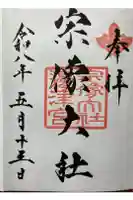 奉拝
宗像大社
令和八年 五月十三日